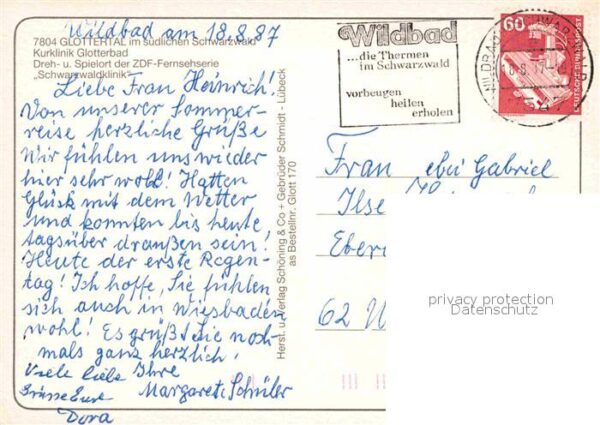 Wildbad am 18.8.87
7804 GLOTTERTAL im südlichen Schwarzwald
Kurklinik Glotterbad
Dreh- u. Spielort der ZDF-Fernsehserie
„Schwarzwaldklinik“
Liebe Frau Heinrich!
Von unserer Sommer-
reise herzliche Grüße
Wir fühlen uns wieder
hier sehr wohl! Hatten
Glück mit dem Wetter
und konnten bis heute
tagsüber draußen sein!
Heute der erste Regen-
tag! Ich hoffe, Sie fühlen
sich auch in Wiesbaden
wohl! Es grüßt Sie noch-
mals ganz herzlich,
Ihre
Margarete Schüler
Viele liebe
Grüsse Eure
Dora
Herst. u. Verlag Schöning & Co + Gebrüder Schmidt - Lübeck
as Bestellnr. Glott 170
Wildbad
...die Thermen
im Schwarzwald
vorbeugen
heilen
erholen
60
DEUTSCHE BUNDESPOST
Frau bei Gabriel
Ilse
Eber
62 W
privacy protection
Datenschutz